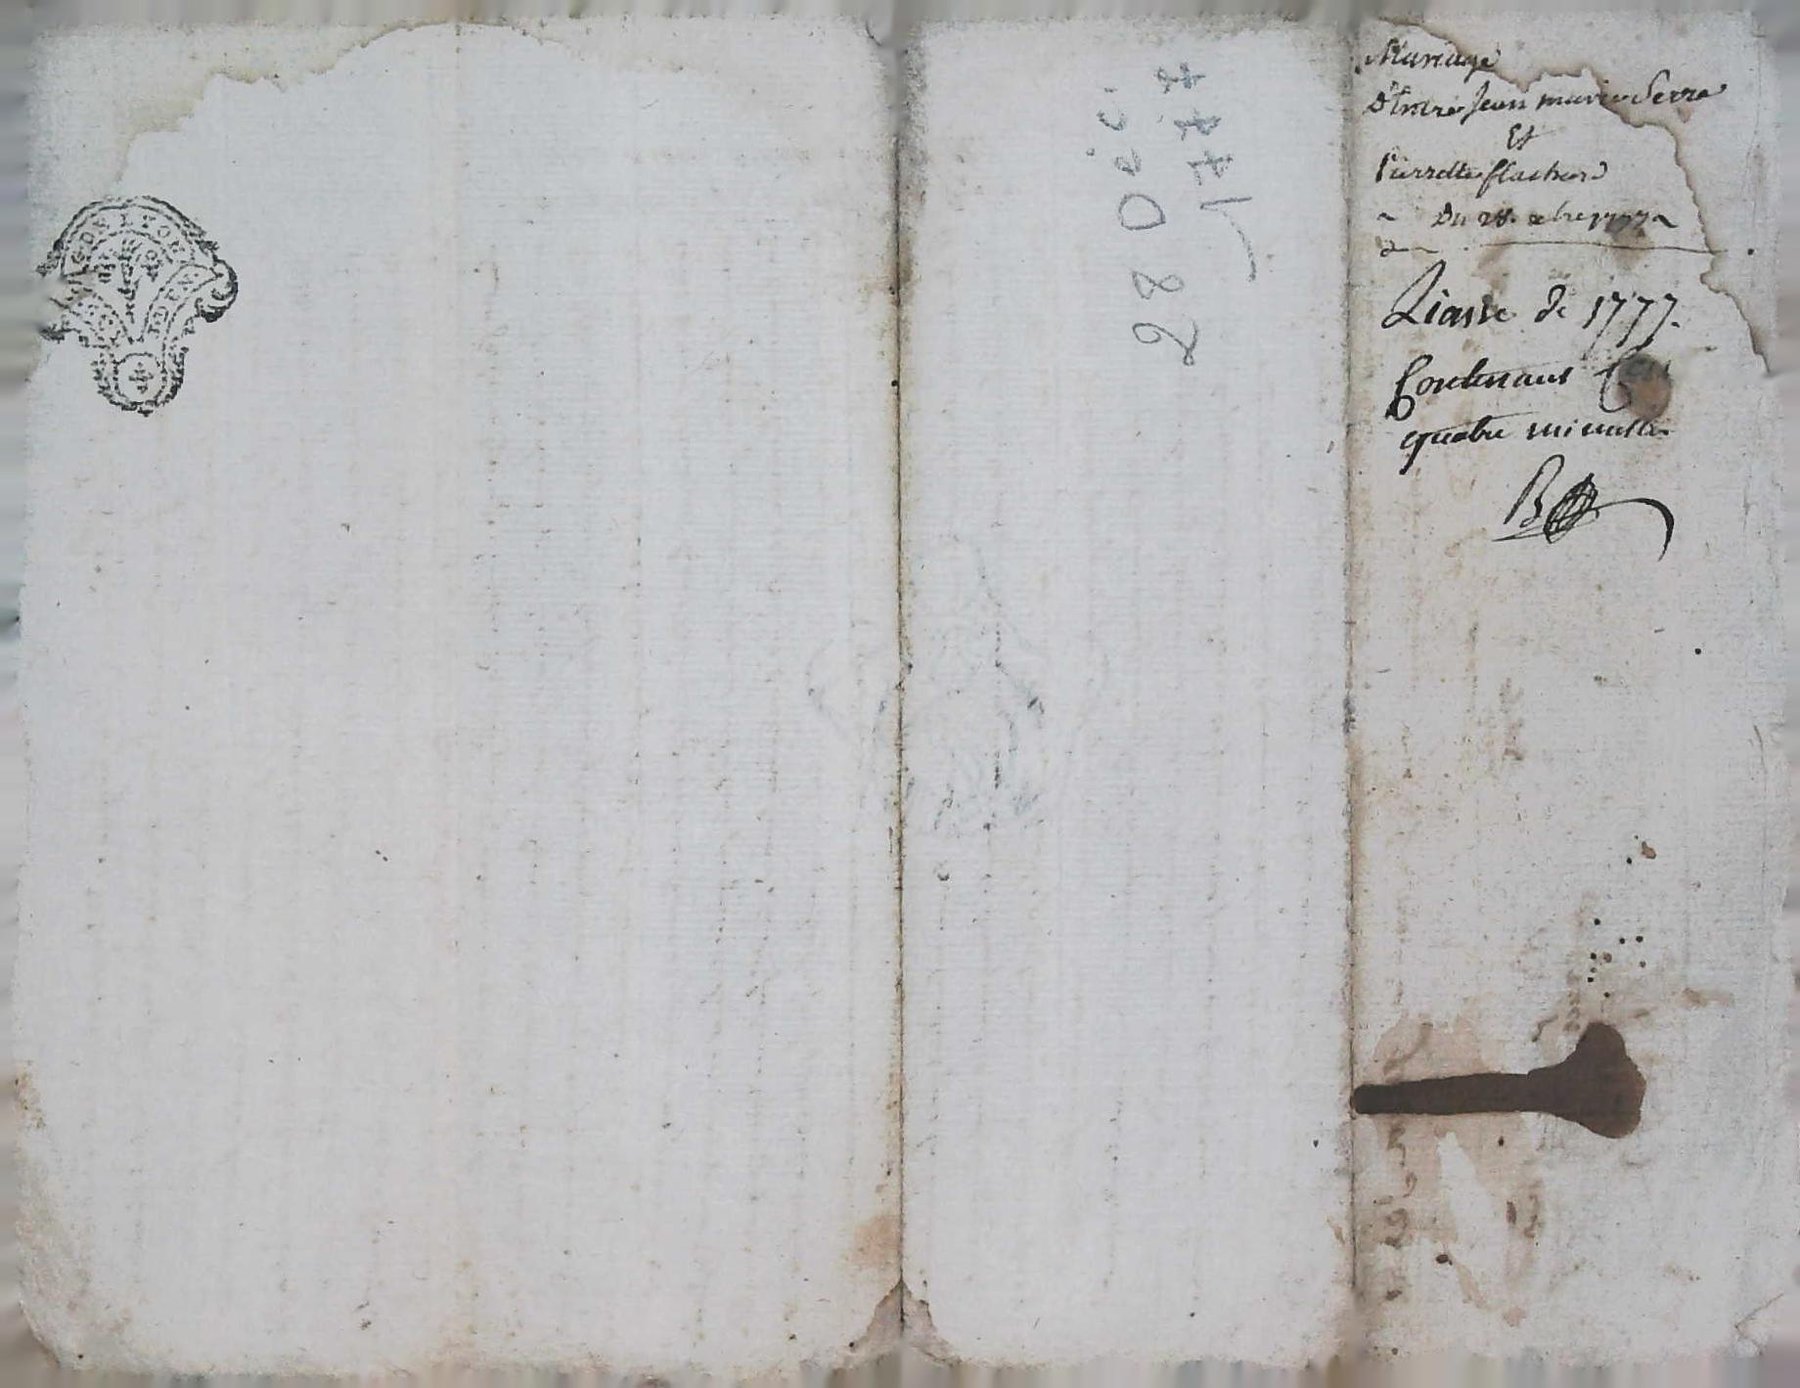 Mariage
D'Entre Jean marie Serre
Et
Pierrette flachard
Du 28. xbre 1777
Liasse de 1777.
Contenant
quatre minutte
28 Déc.
1777